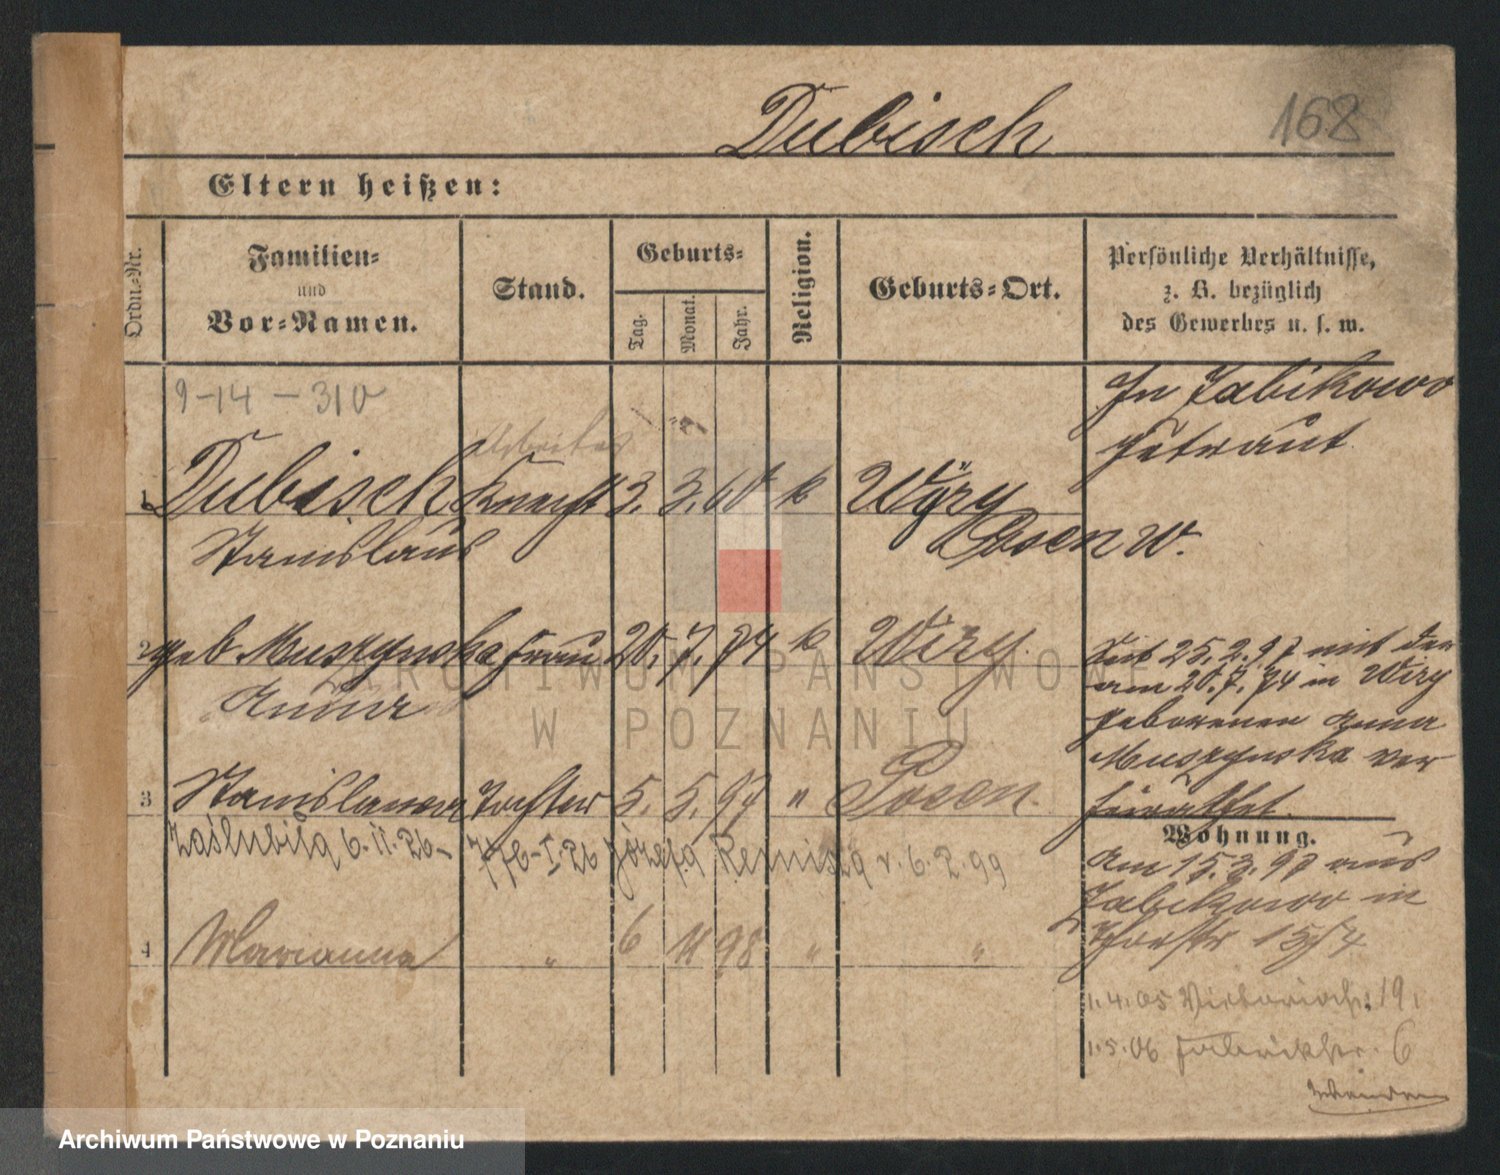 168
Dubisch
Eltern heißen:
Ordn.-Nr.
Familien-
und
Vor-Namen.
Stand.
Geburts-
Tag.
Monat.
Jahr.
Religion.
Geburts-Ort.
Persönliche Verhältnisse,
z. B. bezüglich
des Gewerbes u. s. w.
9-14-310
In Zabikowo
getraut
Arbeiter
1 Dubisch Knecht 3. 3. 60 k Wiry
Stanislaus Posen W.
2 geb Muszynska Frau 20. 7. 74 k Wiry
Anna
Seit 25.2.97 mit der
am 20.7.74 in Wiry
geborenen Anna
Muszynska ver
heirathet.
3 Stanislawa Tochter 5. 5. 97 " Posen.
Zaślubiła 6.II.26-
776-I.26 Józefa v. 6.2.99
Wohnung.
Am 15.3.97 aus
Zabikowo in
15/4
4 Marianna " 6 11 98 " "
1.4.05 Victoriastr. 19,
1.5.06 Fabrikstr. 6
ARCHIWUM PAŃSTWOWE
W POZNANIU
Archiwum Państwowe w Poznaniu